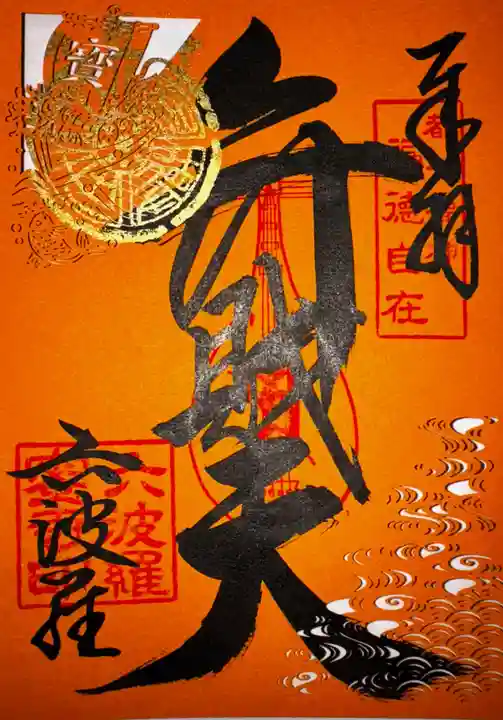 奉拝
福德自在
弁財天
六波羅
六波羅
寳